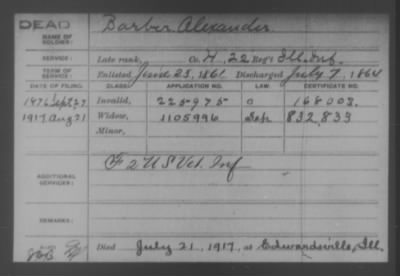 DEAD
NAME OF SOLDIER: Barber Alexander
SERVICE: Late rank, Co. H, 22 Reg't Ill. Inf.
TERM OF SERVICE: Enlisted 23, 1861 Discharged July 7, 1864
DATE OF FILING. CLASS. APPLICATION NO. LAW. CERTIFICATE NO.
1876 Sept 27 Invalid, 225975 168003.
1917 Aug 21 Widow, 1105996 832,833
Minor,
ADDITIONAL SERVICES: F 2 U S Vet. Inf
REMARKS:
Died July 21, 1917, at Edwardsville, Ill.